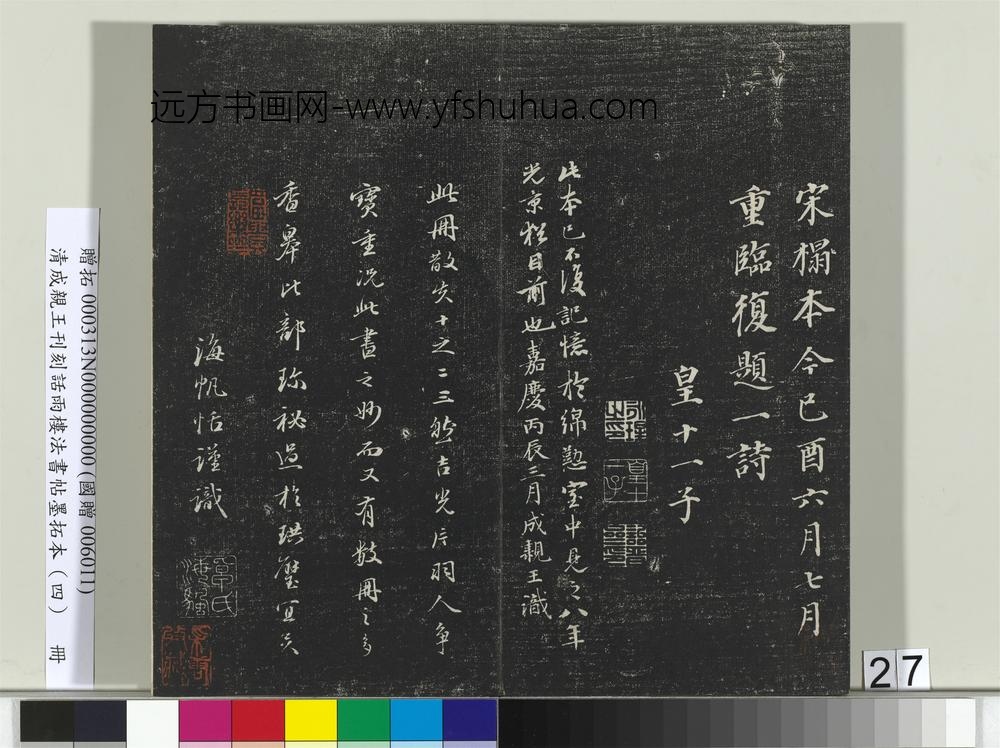 远方书画网-www.yfshuhua.com
宋搨本今己酉六月七月
重臨復題一詩
皇十一子
此本已不復記憶於綿懃室中見之八年
光京於目前也嘉慶丙辰三月成親王識
此冊散失十之二三然吉光片羽人爭
寶重況此書之妙而又有數冊之多
香皋比部珍祕過於珙璧宜矣
海帆恬謹識
贈拓000313N000000000(國贈006011)
清成親王刊刻話雨樓法書帖墨拓本(四) 冊
27